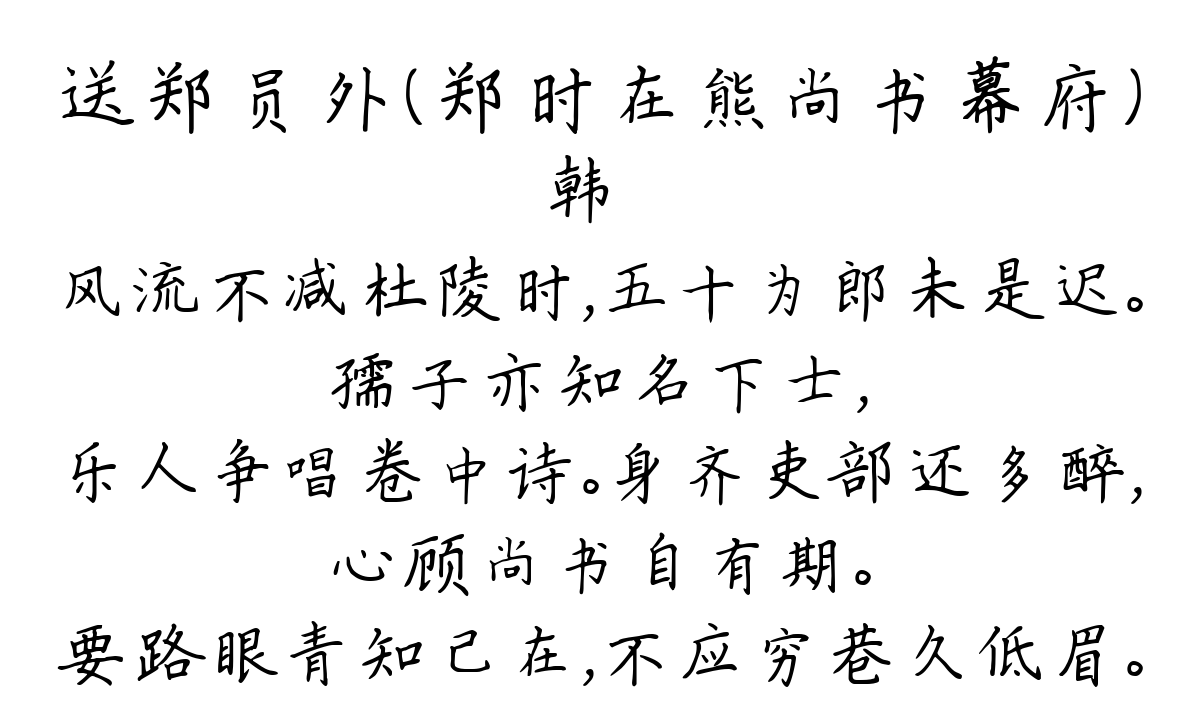 送郑员外(郑时在熊尚书幕府)
韩
风流不减杜陵时,五十为郎未是迟。
孺子亦知名下士,
乐人争唱卷中诗。身齐吏部还多醉,
心顾尚书自有期。
要路眼青知己在,不应穷巷久低眉。